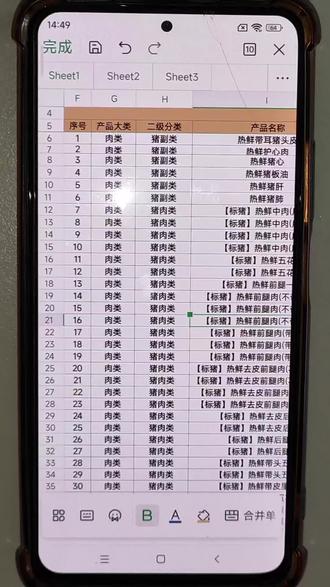 14:49 64
完成 10
Sheet1 Sheet2 Sheet3 ...
F G H I
4
5 序号 产品大类 二级分类 产品名称
6 1 肉类 猪副类 热鲜带耳猪头皮
7 2 肉类 猪副类 热鲜护心肉
8 3 肉类 猪副类 热鲜猪心
9 4 肉类 猪副类 热鲜猪板油
10 5 肉类 猪副类 热鲜猪肝
11 6 肉类 猪副类 热鲜猪肺
12 7 肉类 猪肉类 【标猪】热鲜中肉(
13 8 肉类 猪肉类 【标猪】热鲜中肉(
14 9 肉类 猪肉类 【标猪】热鲜中肉(
15 10 肉类 猪肉类 【标猪】热鲜中肉(
16 11 肉类 猪肉类 【标猪】热鲜五花
17 12 肉类 猪肉类 【标猪】热鲜五花
18 13 肉类 猪肉类 【标猪】热鲜前腿一
19 14 肉类 猪肉类 【标猪】热鲜前腿肉(不
20 15 肉类 猪肉类 【标猪】热鲜前腿肉(不
21 16 肉类 猪肉类 【标猪】热鲜前腿肉(不
22 17 肉类 猪肉类 【标猪】热鲜前腿肉(带
23 18 肉类 猪肉类 【标猪】热鲜前腿肉(带
24 19 肉类 猪肉类 【标猪】热鲜前腿肉(带
25 20 肉类 猪肉类 【标猪】热鲜去皮前腿肉(
26 21 肉类 猪肉类 【标猪】热鲜去皮前腿肉(
27 22 肉类 猪肉类 【标猪】热鲜去皮前腿肉
28 23 肉类 猪肉类 【标猪】热鲜去皮前腿肉(
29 24 肉类 猪肉类 【标猪】热鲜去皮后
30 25 肉类 猪肉类 【标猪】热鲜去皮后
31 26 肉类 猪肉类 【标猪】热鲜后腿
32 27 肉类 猪肉类 【标猪】热鲜后腿
33 28 肉类 猪肉类 【标猪】热鲜带头五
34 29 肉类 猪肉类 【标猪】热鲜带头五
35 30 肉类 猪肉类 【标猪】热鲜带皮
B A 合并单